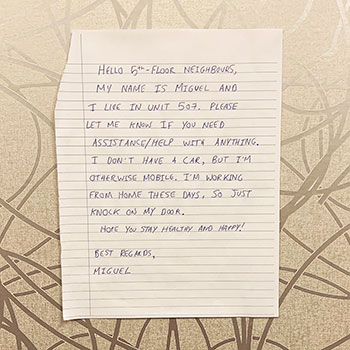 HELLO 5th-FLOOR NEIGHBOURS,
MY NAME IS MIGUEL AND
I LIVE IN UNIT 507. PLEASE
LET ME KNOW IF YOU NEED
ASSISTANCE/HELP WITH ANYTHING.
I DON'T HAVE A CAR, BUT I'M
OTHERWISE MOBILE. I'M WORKING
FROM HOME THESE DAYS, SO JUST
KNOCK ON MY DOOR.
HOPE YOU STAY HEALTHY AND HAPPY!
BEST REGARDS,
MIGUEL